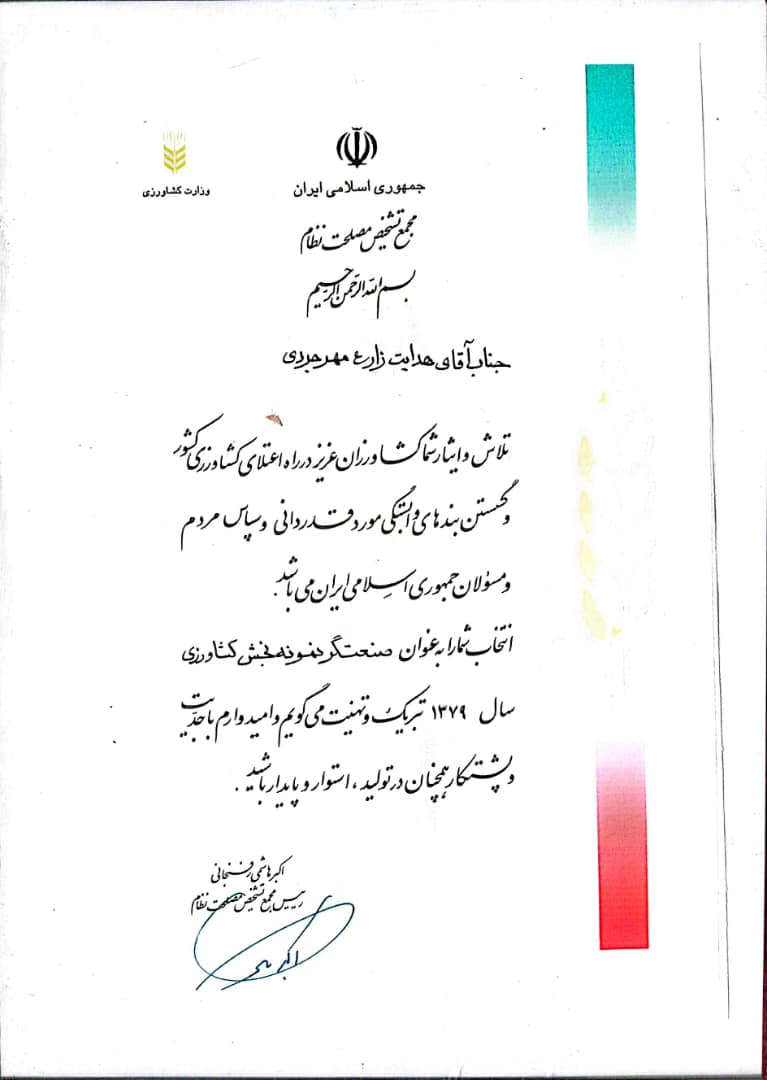 جمهوری اسلامی ایران
وزارت کشاورزی
مجمع تشخیص مصلحت نظام
بسم الله الرحمن الرحیم
جناب آقای هدایت زارع مهرجردی
تلاش و ایثار شما کشاورزان عزیز در راه اعتلای کشاورزی کشور
و گسستن بندهای وابستگی مورد قدردانی و سپاس مردم
و مسؤلان جمهوری اسلامی ایران می باشد.
انتخاب شما را به عنوان صنعتگر نمونه بخش کشاورزی
سال ۱۳۷۹ تبریک و تهنیت می گویم و امیدوارم با جدیت
و پشتکار همچنان در تولید، استوار و پایدار باشید.
اکبر هاشمی رفسنجانی
رییس مجمع تشخیص مصلحت نظام